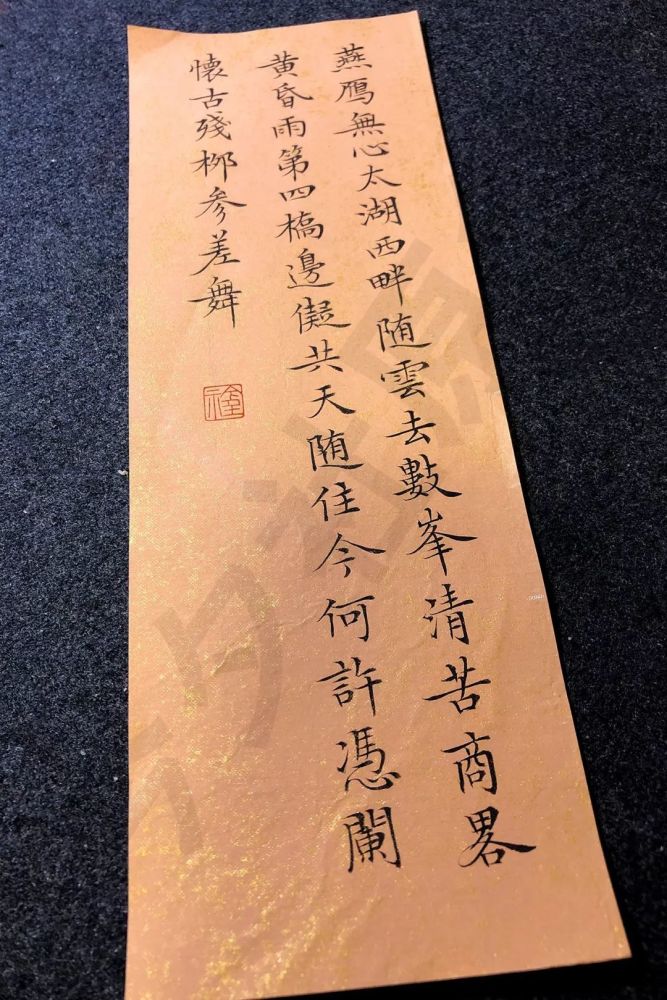 燕鴈無心太湖西畔随雲去數峯清苦商畧
黄昏雨第四橋邊儗共天随住今何許憑闌
懷古殘柳參差舞